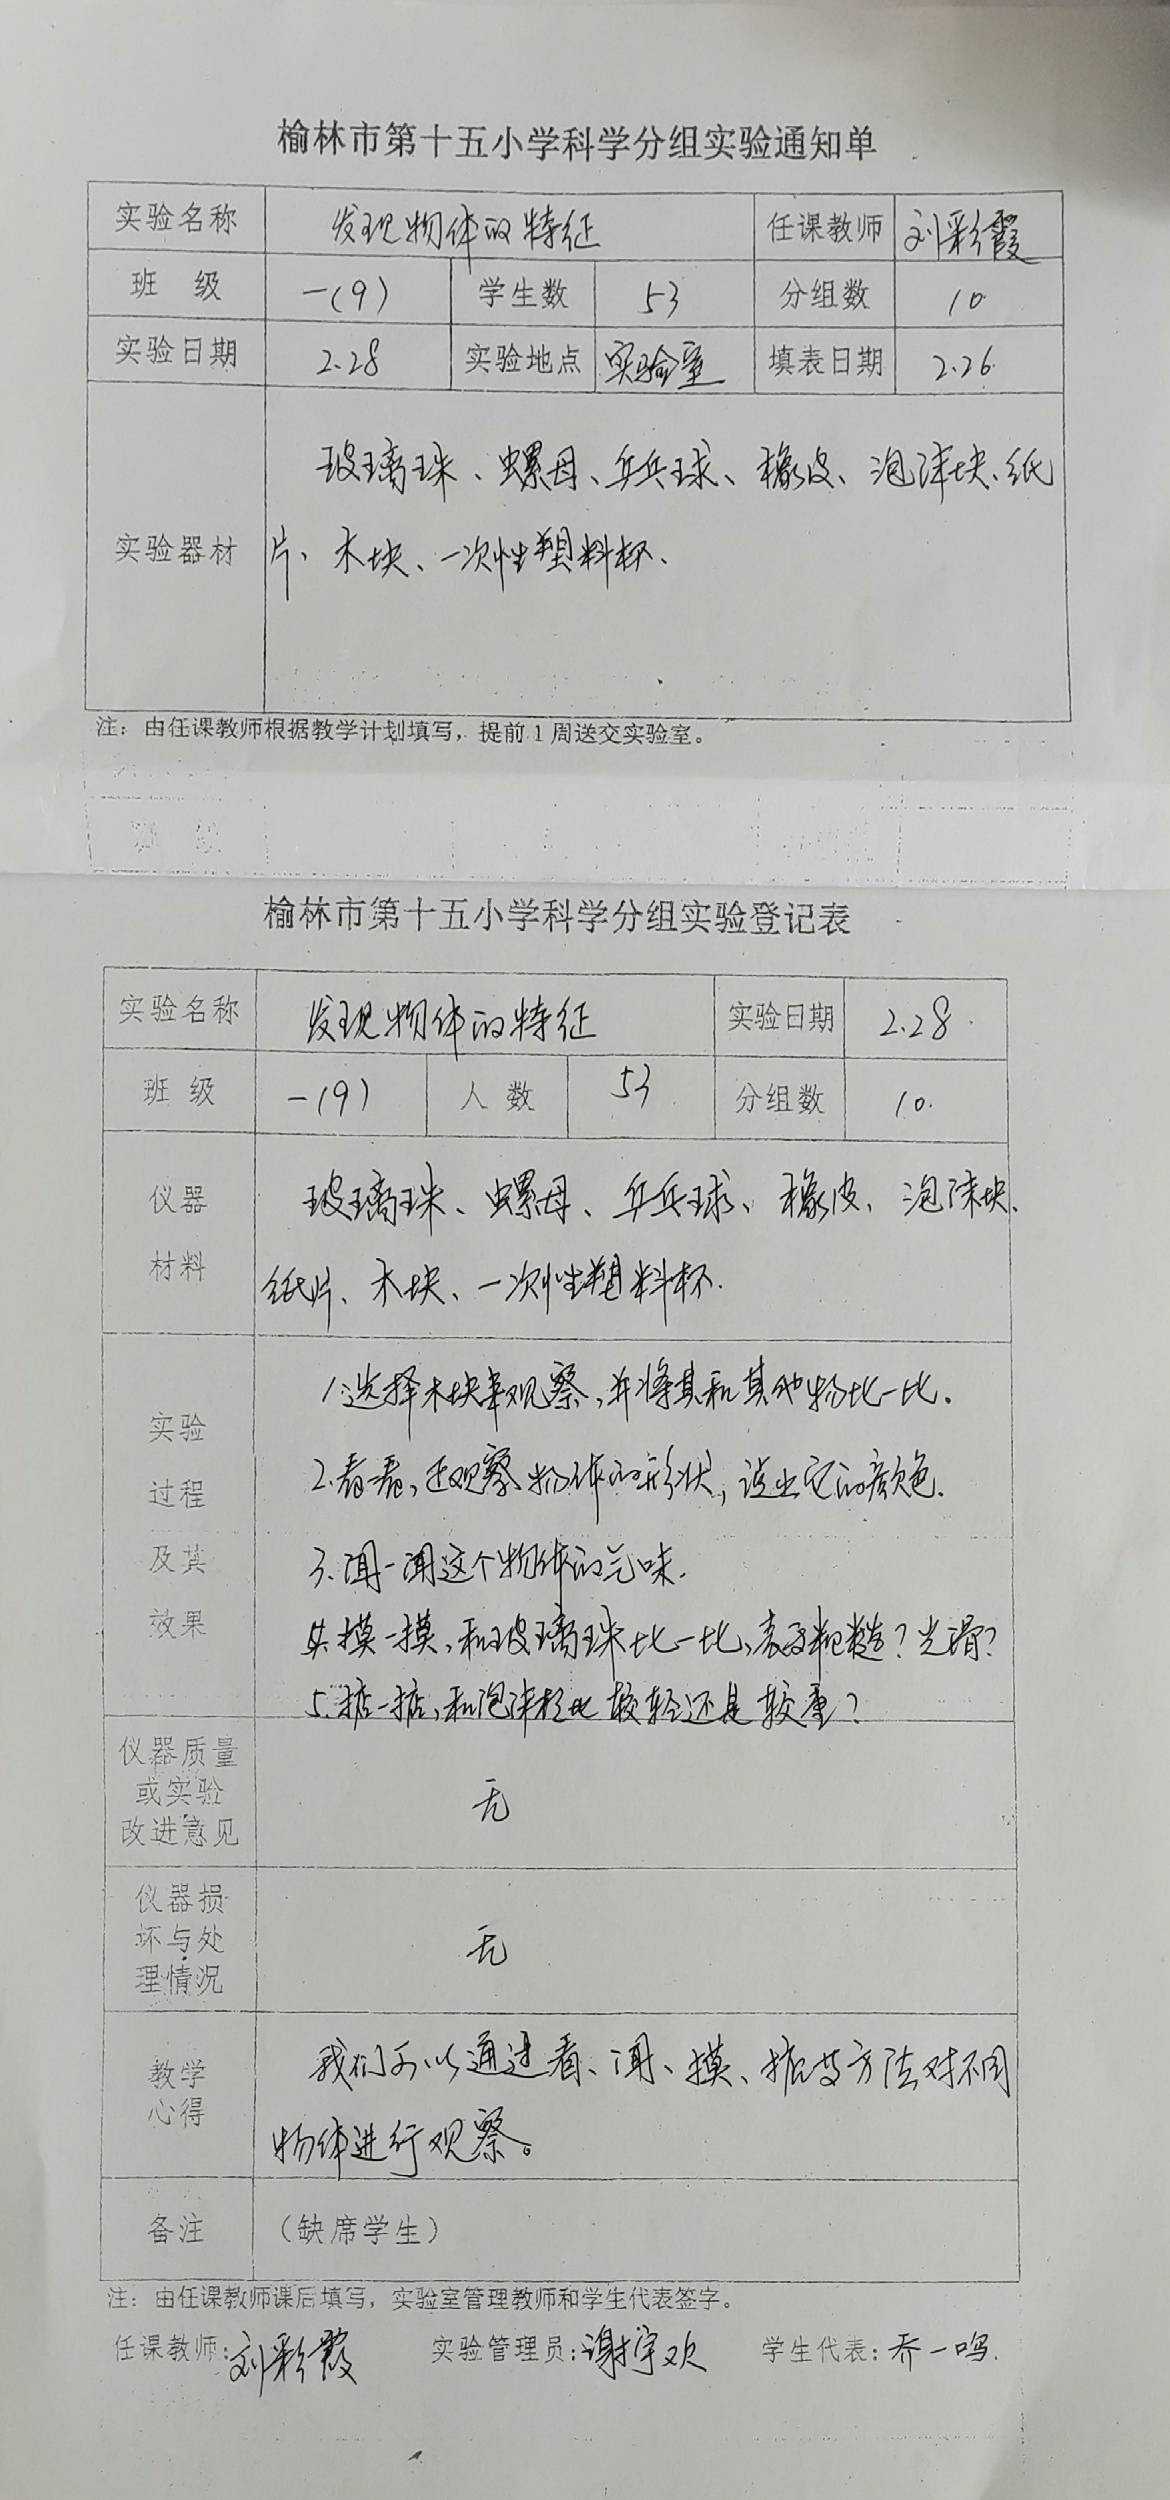 榆林市第十五小学科学分组实验通知单
实验名称 发现物体的特征 任课教师 刘彩霞
班 级 一(9) 学生数 53 分组数 10
实验日期 2.28 实验地点 实验室 填表日期 2.26
实验器材
玻璃珠、螺母、乒乓球、橡皮、泡沫块、纸
片、木块、一次性塑料杯、
注：由任课教师根据教学计划填写，提前1周送交实验室。
榆林市第十五小学科学分组实验登记表
实验名称 发现物体的特征 实验日期 2.28
班 级 一(9) 人 数 53 分组数 10
仪器 玻璃珠、螺母、乒乓球、橡皮、泡沫块、
材料 纸片、木块、一次性塑料杯.
实验
过程
及其
效果
1.选择木块来观察,并将其和其他物比一比.
2.看一看,观察物体的形状,说出它的颜色.
3.闻一闻这个物体的气味.
4.摸一摸,和玻璃珠比一比,表面粗糙?光滑?
5.掂一掂,和泡沫块比较轻还是较重?
仪器质量
或实验
改进意见
无
仪器损
坏与处
理情况
无
教学
心得
我们可以通过看、闻、摸、掂等方法对不同
物体进行观察。
备注 （缺席学生）
注：由任课教师课后填写，实验室管理教师和学生代表签字。
任课教师:刘彩霞 实验管理员:谢宇欢 学生代表:乔一鸣.